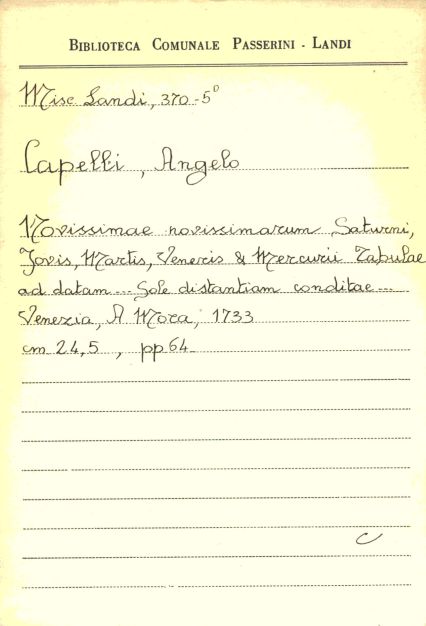 BIBLIOTECA COMUNALE PASSERINI - LANDI
Misc Landi, 370-5°
Capelli, Angelo
Novissimae novissimarum Saturni,
Jovis, Martis, Veneris & Mercurii Tabulae
ad datam ... Sole distantiam conditae ...
Venezia, A Mora, 1733
cm 24,5 , pp 64
C